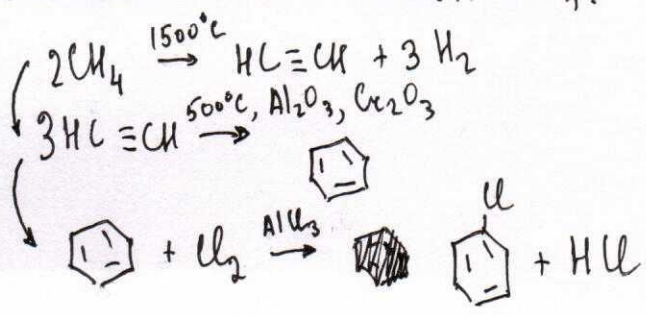 2CH₄ 1500°C → HC≡CH + 3 H₂
3HC≡CH 500°C, Al₂O₃, Cr₂O₃ →
+ Cl₂ AlCl₃ → Cl + HCl